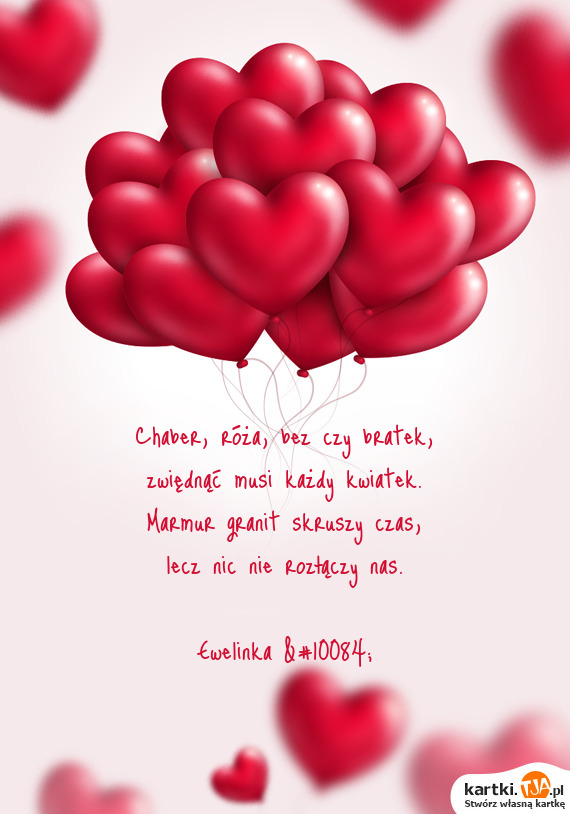 Chaber, róża, bez czy bratek,
zwiędnąć musi każdy kwiatek.
Marmur granit skruszy czas,
lecz nic nie rozłączy nas.
Ewelinka &#10084;
kartki.TJA.pl
Stwórz własną kartkę